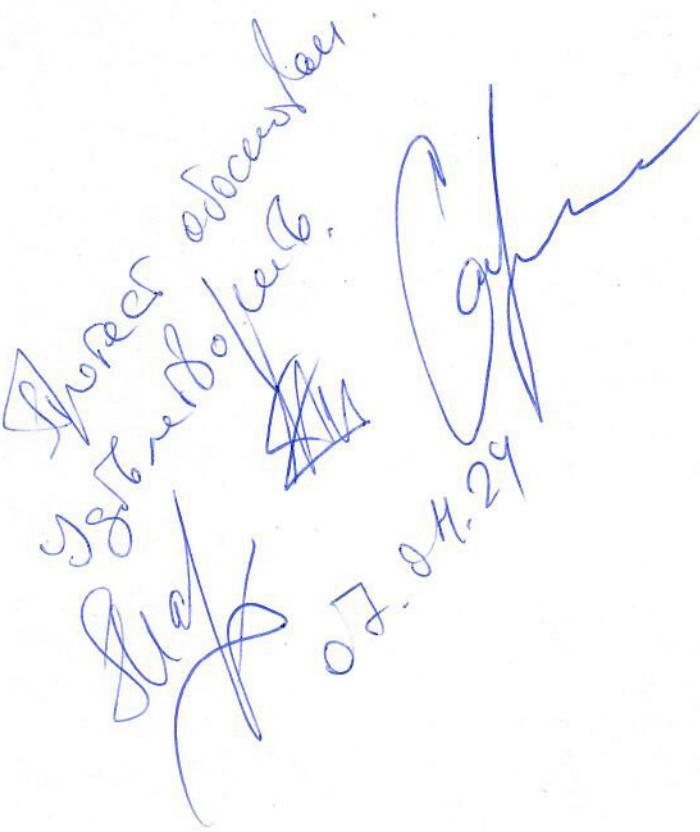 Протест обоснован.
удовлетворить.
07.04.24